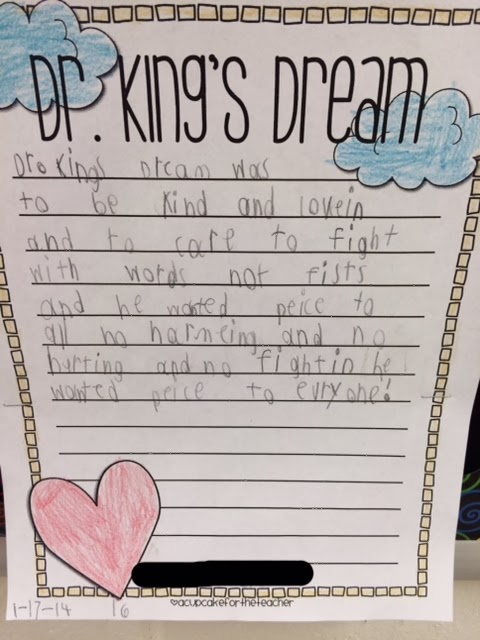 Dr. King's Dream
Dr. Kings Dream was
to be kind and lovein
and to care to fight
with words not fists
and he wanted peice to
all no harmeing and no
hurting and no fightin he
wanted peice to evryone!
1-17-14 16
♥acupcakefortheteacher